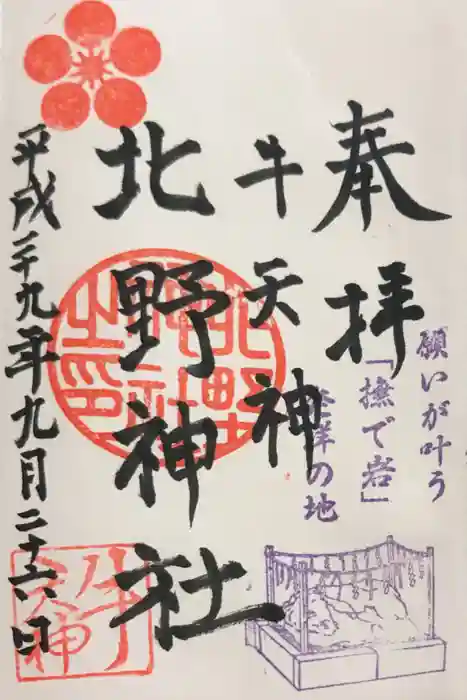 奉拝
願いが叶う
「撫で岩」
発祥の地
牛天神
北野神社
平成二十九年九月二十六日
北野神社之印
牛天神